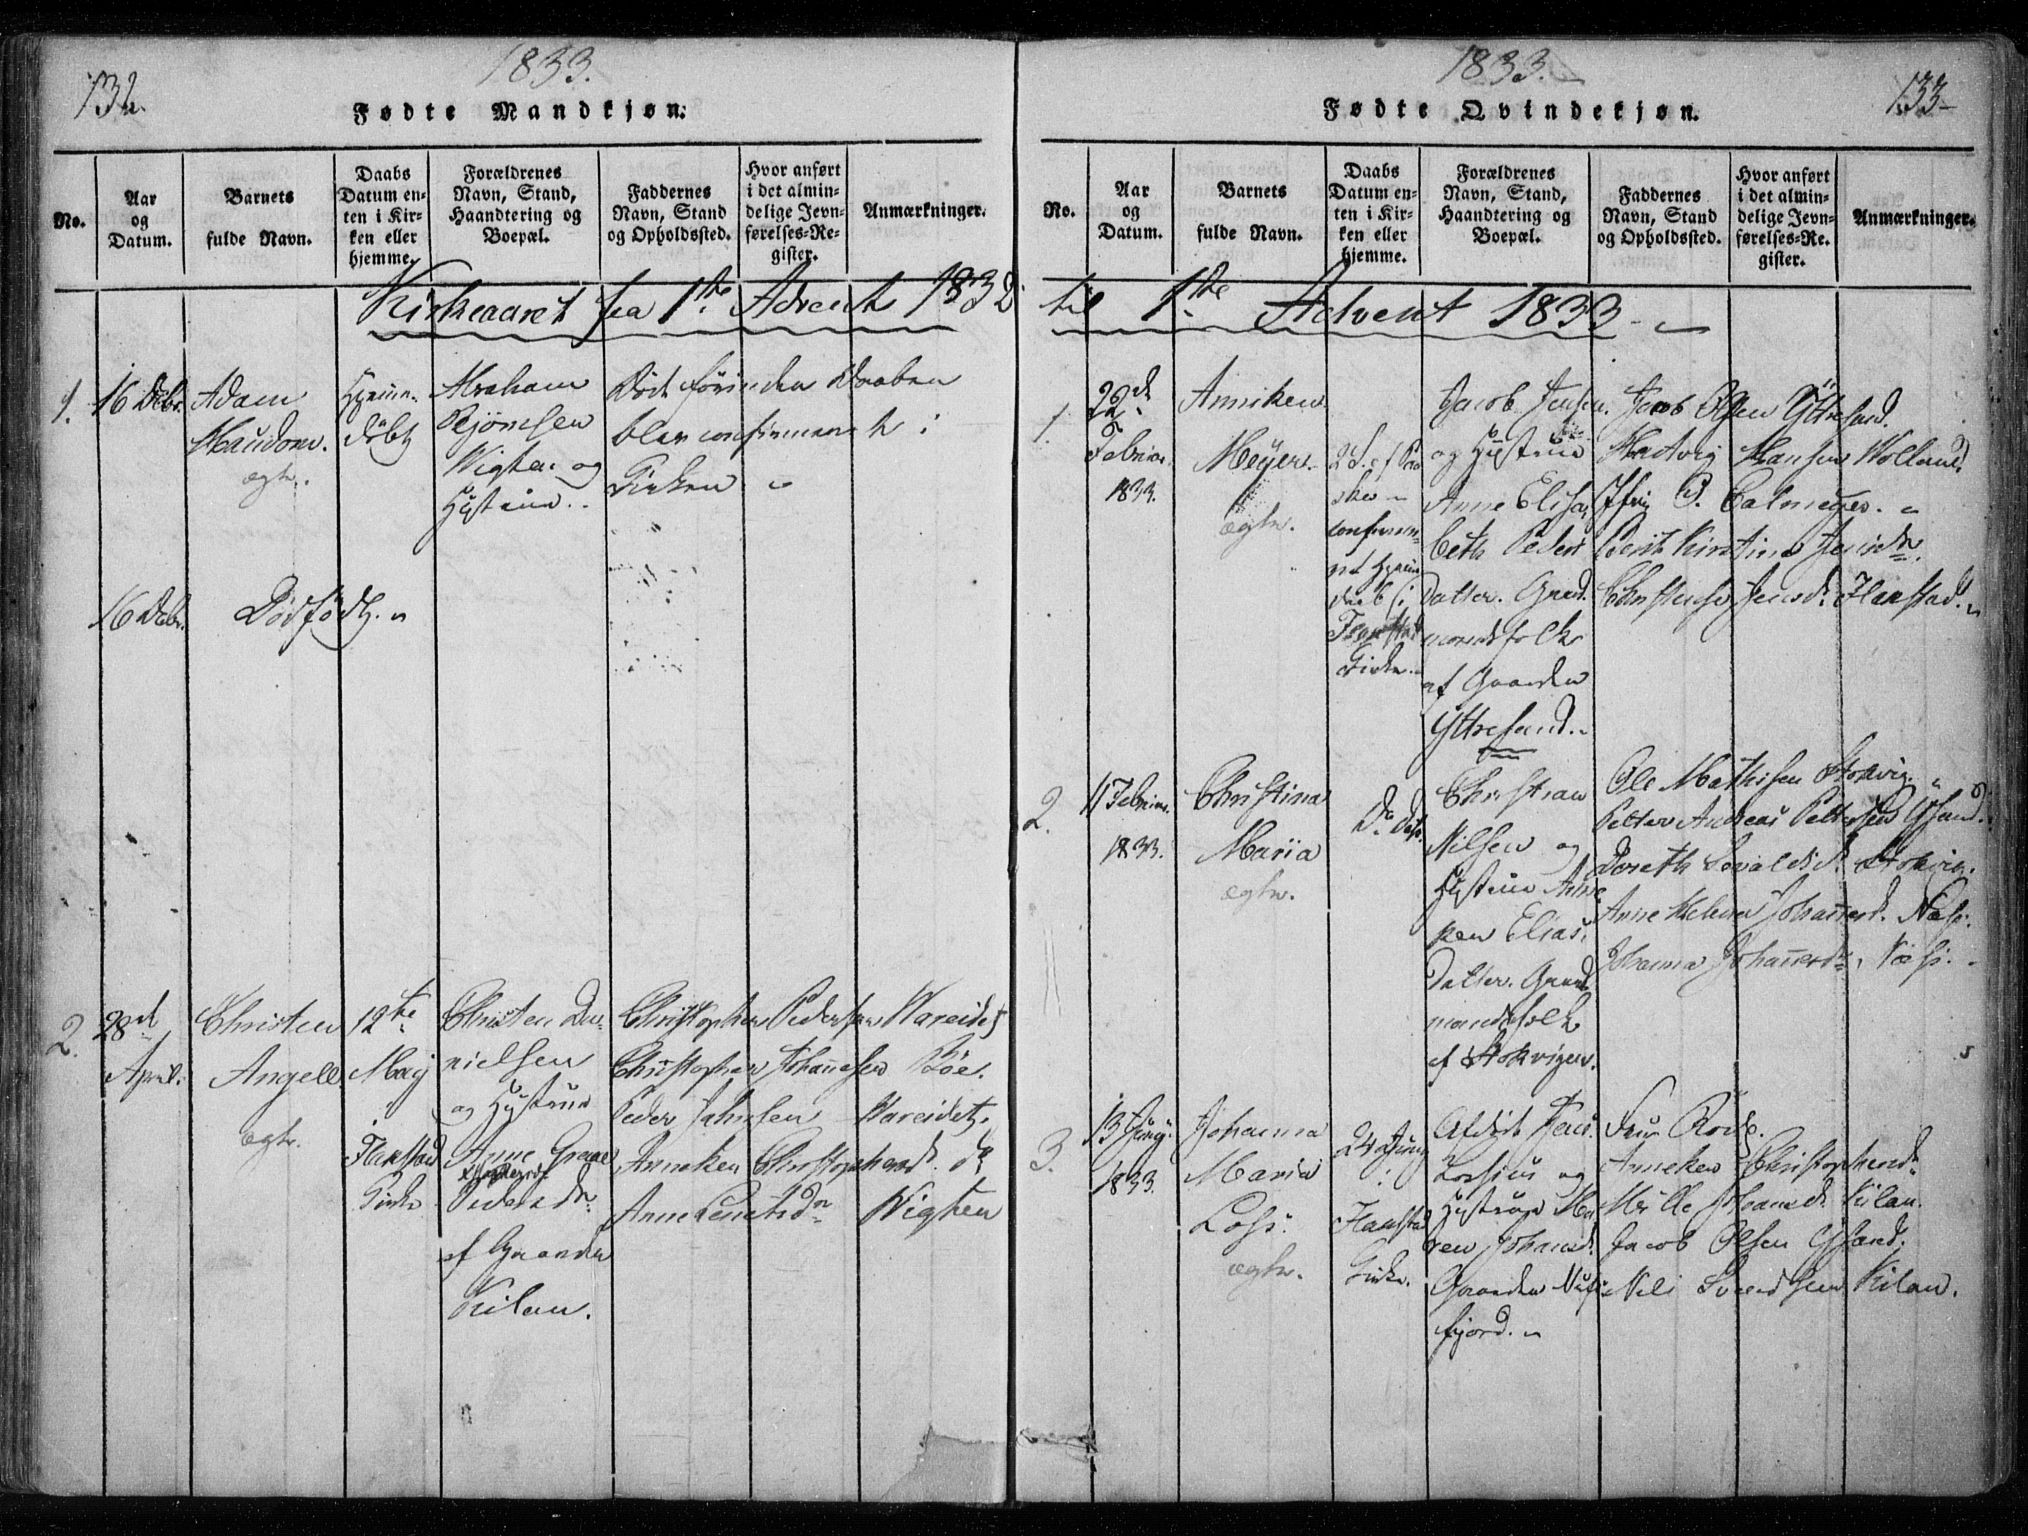 132.
1833.
Fødte Mandkjøn.
No.
Aar
og
Datum.
Barnets
fulde Navn.
Daabs
Datum en-
ten i Kir-
ken eller
hjemme.
Forældrenes
Navn, Stand,
Haandtering og
Boepæl.
Faddernes
Navn, Stand
og Opholdssted.
Hvor anført
i det almin-
delige Jevn-
førelses-Re-
gister.
Anmærkninger.
Kirkeaaret fra 1ste Advent 1832
1.
16 Debr.
Adam
ægte.
Hjemme-
døbt
Abraham
Bjørnsen
Wigten og
Hystrue.
Død førinden Daaben
blev confirmeret i
Kirken
16 Debr.
Dødfødt.
2.
28d
April.
Christen
Angell
ægte.
12te
Maj
i
Flakstad
Kirke
Christen Da-
nielsen
og Hystrue
Anne Graae
Pedersdr.
af Gaarden
Kilan.
Christopher Pedersen Wareidet
Christopher Johannesen Bøe.
Peder Johnsen Wareidet,
Anneken Christophersd. do
Anne Wigten
1833.
133
Fødte Qvindekjøn.
No.
Aar
og
Datum.
Barnets
fulde Navn.
Daabs
Datum en-
ten i Kir-
ken eller
hjemme.
Forældrenes
Navn, Stand,
Haandtering og
Boepæl.
Faddernes
Navn, Stand
og Opholdssted.
Hvor anført
i det almin-
delige Jevn-
førelses-Re-
gister.
Anmærkninger.
til 1ste Advent 1833
1.
Februar
1833.
Anniken
Meyer
ægte.
2 d. af Paa
ske
confirme-
ret Hjemme
daab i
Flakstad
Kirke.
Jacob Jensen
og Hystrue
Anne Elisa
beth Peders
Datter. Gaard
mandsfolk
af Gaarden
Yttresand.
Jacob Olsen Yttresand.
Hartvig Hansen Wolland.
P. Calmeyer.
Berit Kirstine Jensdr.
Jensd. Flakstad.
2.
11 Februar
1833.
Christina
Maria
ægte.
Do Do
Christian
Nilsen og
Hystrue Anne
ken Elias
Datter. Gaard
mandsfolk
af Stokvigen.
Ole Mathisen Stokvig.
Petter Andreas Pettersen Ysand.
Doreth Stokvig.
Anne Helena Johannesd. Næss.
Johanna Johannesdr. Næss.
3.
13 Junj.
1833.
Johanna
Maria
Loss.
ægte.
24 Junj
i
Flakstad
Kirke.
Afdøde Jens
Lossius og
Hystrue Ma
ren Johansd.
Gaarden Nus
fjord.
Fru Rode.
Anneken Christophersdr.
Mille Johannesd. Kilan.
Jacob Olsen Ysand.
Nils Svendsen Kilan.